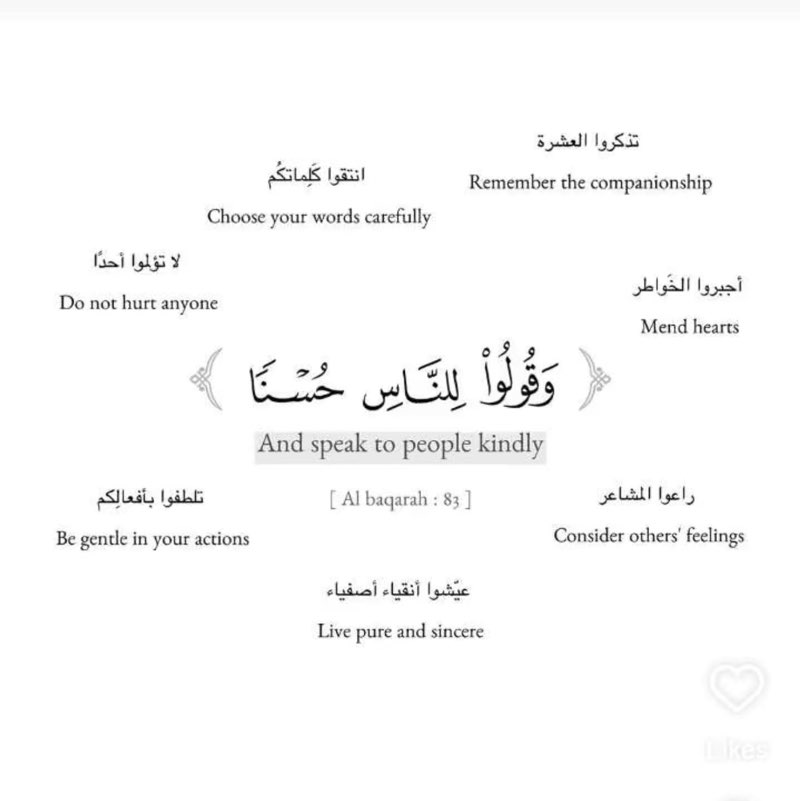 تذكروا العشرة
Remember the companionship
انتقوا كَلِماتكُم
Choose your words carefully
لا تؤلموا أحدًا
Do not hurt anyone
أجبروا الخَواطر
Mend hearts
وَقُولُوا۟ لِلنَّاسِ حُسْنًا
And speak to people kindly
[ Al baqarah : 83 ]
تلطفوا بأفعالِكم
Be gentle in your actions
راعوا المشاعر
Consider others' feelings
عيّشوا أنقياء أصفياء
Live pure and sincere
Likes